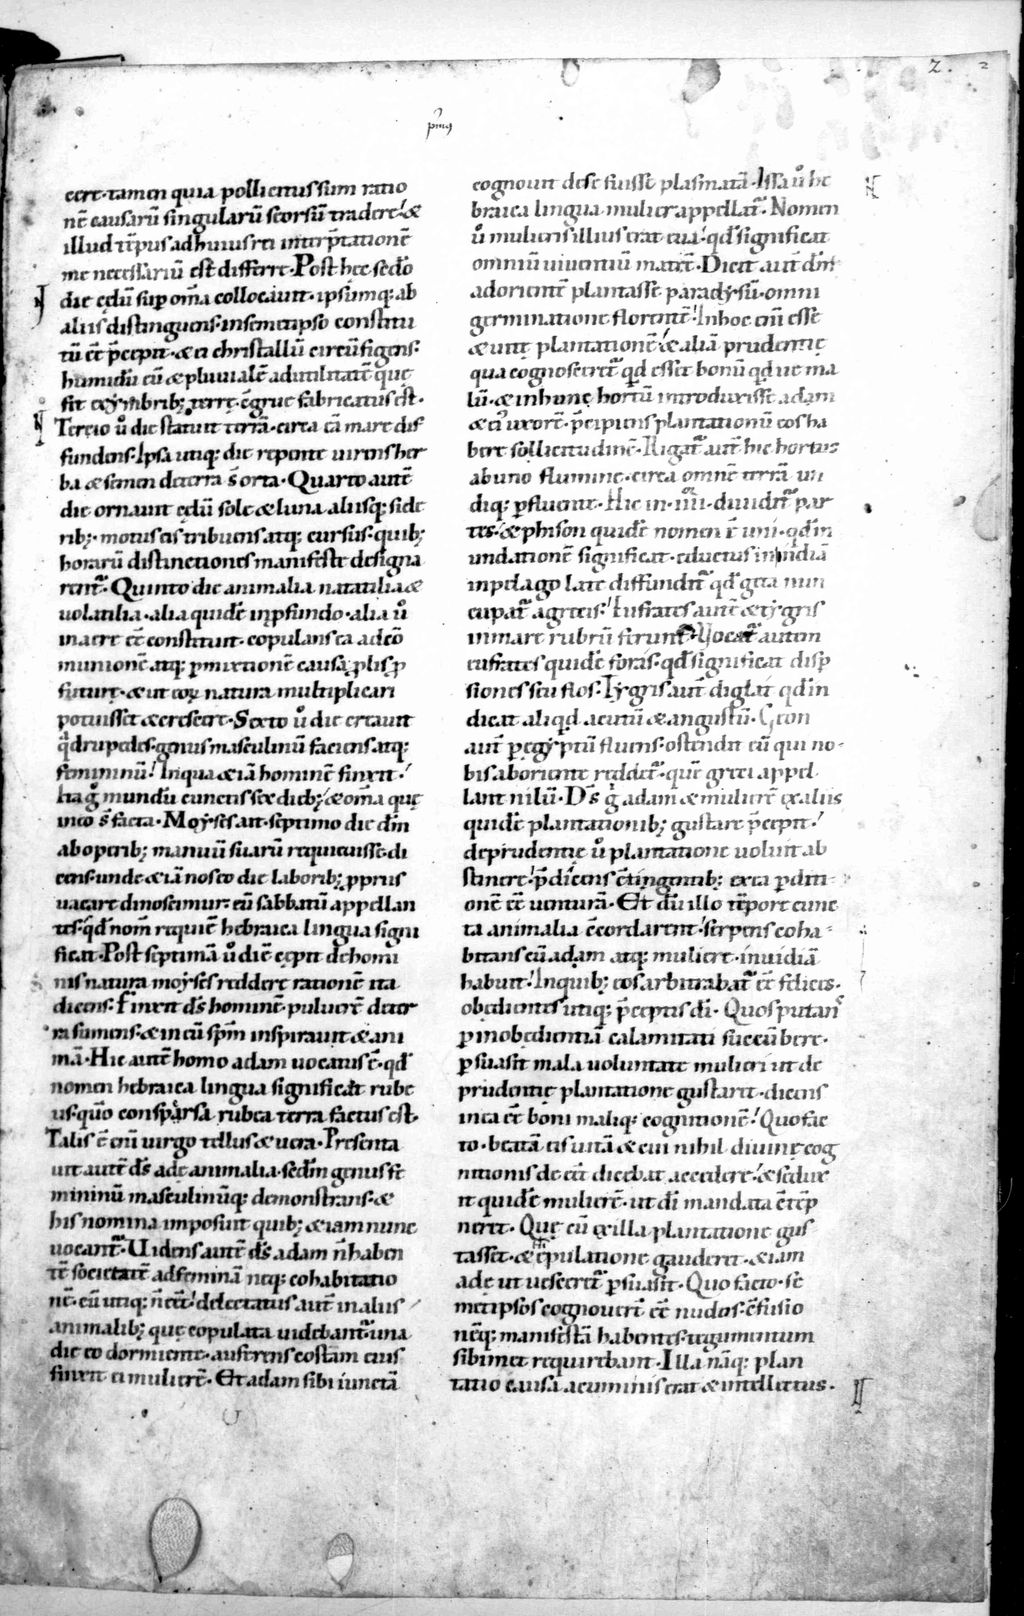 2. 2
p̄mꝰ
cere·tamen quia pollicitus sum ratio
nē causarū singularū seorsū tradere·&
illud tēpus ad huius rei interp̄tationē
me necessariū est differre·Post hec sedo
die cęlū sup om̄a collocauit·ipsumq; ab
aliis distinguens·in semetipso constitu
tū eē p̄cepit·& ei christallū circūfigens·
humidū eū & pluuialē ad utilitatē quę
fit ex ymbrib; terrę·c̄grue fabricatus est·
Tercio ů die statuit terrā·circa eā mare dif
fundens·Ipsa utiq; die repente uirens her
ba & semen de terra s̄ orta·Quarto autē
die ornauit cęlū sole & luna aliisq; side
rib;·motus eis tribuens atq; cursus·quib;
horarū distinctiones manifeste designa
rent᷑·Quinto die animalia natatilia &
uolatilia·alia quidē in p̱fundo·alia ů
in aere eē constituit·copulans ea ad cō
munionē atq; p̱mixtionē causa p̱lis p̱
futurę·& ut eoꝝ natura multiplicari
potuisset & crescere·Sexto ů die creauit
q̇drupedes·genus masculinū faciens atq;
femininū·In qua & iā hominē finxit·
Ita g̊ mundū cunctis sex dieb;·& om̄a quę
in eo s̄ facta·Moyses ait·septimo die dm̄
ab operib; manuū suarū requieuisse·di
cens·unde & iā nos eo die laborib; p̱priis
uacare dinoscimur·eū sabbatū appellan
tes·qd̄ nom̄ requiē hebraica lingua signi
ficat·Post septimā ů diē cepit de homi
nis natura moyses reddere rationē ita
dicens·Finxit ds̄ hominē·puluerē de ter
ra sumens·& in eū spm̄ inspirauit & ani
mā·Hic autē homo adam uocatus ē·qd̄
nomen hebraica lingua significat rube
us·quo conspārsa rubea terra factus est·
Talis ē enī uirgo tellus & uera·Presenta
uit autē ds̄ ade animalia·sedm̄ genus fe
mininū masculinūq; demonstrans·&
his nomina imposuit quib; & iam nunc
uocant᷑·Uidens autē ds̄ adam n̄ haben
tē societatē ad feminā neq; cohabitatio
nē·eū utiq; n̄ eēt·delectatus aut̄ in aliis
animalib; quę copulata uidebant᷑·una
die eo dormiente·auferens costam eius
finxit ei mulierē·Et adam sibi iunctā
cognouit de se fuisse plasmatā·Issa ů he
braica lingua mulier appellat᷑·Nomen
ů mulieris illius erat eua·qd̄ significat
omniū uiuentiū matrē·Dicit aut̄ dm̄
ad orientē plantasse paradysū·omni
germinatione florentē·In hoc enī esse
& uitę plantationē·& aliā prudentię
qua cognoscerēt᷑ qd̄ esset bonū qd̄ue ma
lū·& in hunc hortū introduxisse adam
& ei' uxorē·p̄cipiens plantationū eos ha
bere sollicitudinē·Rigat᷑ aut̄ hic hortus
ab uno flumine·circa omnē terrā un
diq; p̱fluente·Hic in·iiii·diuidit᷑ par
tes·& phison quidē nomen ē uni·qd̄ in
undationē significat·eductus in indiā
in pelago late diffundit᷑ qd̄ geta nun
cupat᷑ a grecis·Eufrates autē & tygris
in mare rubrū ferunt᷑·Vocat᷑ autem
eufrates quidē foras·qd̄ significat disp̱
siones seu flos·Tygris aut̄ diglat qd̄ in
dicat aliqd̄ acutū & angustū·Geon
aut̄ p̱ egyptū fluens·ostendit eū qui no-
bis ab oriente reddet᷑·quē greci appel
lant nilū·Ds̄ g̊ adam & mulierē ex aliis
quidē plantationib; gustare p̄cepit·
de prudentię ů plantatione uoluit ab
stinere·p̄dicens c̄tingentib; ex ea p̱diti-
onē eē uenturā·Et dū illo tēpore cunc
ta animalia c̄cordarent·serpens coha-
bitans cū adam atq; muliere·inuidiā
habuit·In quib; eos arbitrabat᷑ eē felices·
obędientes utiq; p̄ceptis dī·Quos putans
p̱ inobedientiā calamitati succūbere·
p̱suasit mala uoluntate mulieri ut de
prudentię plantatione gustaret·dicens
in ea eē boni maliq; cognitionē·Quo fac
to·beatā eis uitā & cui nihil diuinę cog
nitionis deeēt dicebat accedere·& sedux
it quidē mulierē·ut dī mandata c̄tēp
neret·Quę cū ex illa plantatione gus
tasset·& epulatione gauderet·& iam
adę ut uesceret᷑ p̱suasit·Quo facto·se
metipsos cognouerē eē nudos·c̄fusio
nēq; manifestā habentes·tegumentum
sibimet requirebant·Illa nāq; plan
tatio causa acuminis erat & intellectus·